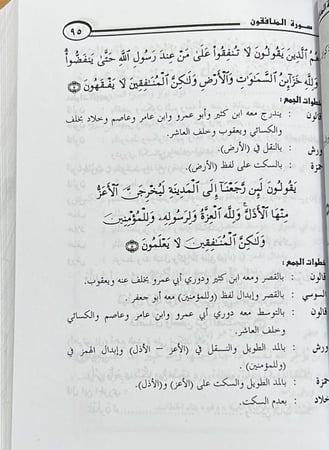 ٩٥
سورة المنافقون
هُمُ الَّذِينَ يَقُولُونَ لَا تُنفِقُوا عَلَىٰ مَنْ عِندَ رَسُولِ اللَّهِ حَتَّىٰ يَنفَضُّوا
وَلِلَّهِ خَزَآئِنُ السَّمَٰوَٰتِ وَالْأَرْضِ وَلَٰكِنَّ الْمُنَٰفِقِينَ لَا يَفْقَهُونَ ٧
خطوات الجمع :
قالون : يندرج معه ابن كثير وأبو عمرو وابن عامر وعاصم وخلاد بخلف
والكسائي ويعقوب وخلف العاشر.
ورش : بالنقل في (الأرض).
حمزة : بالسكت على لفظ (الأرض).
يَقُولُونَ لَئِن رَّجَعْنَآ إِلَى الْمَدِينَةِ لَيُخْرِجَنَّ الْأَعَزُّ
مِنْهَا الْأَذَلَّ وَلِلَّهِ الْعِزَّةُ وَلِرَسُولِهِ وَلِلْمُؤْمِنِينَ
وَلَٰكِنَّ الْمُنَٰفِقِينَ لَا يَعْلَمُونَ ٨
خطوات الجمع :
قالون : بالقصر ومعه ابن كثير ودوري أبي عمرو بخلف عنه ويعقوب.
السوسي : بالقصر وإبدال لفظ (وللمؤمنين) معه أبو جعفر.
قالون : بالتوسط معه دوري أبي عمرو وابن عامر وعاصم والكسائي
وخلف العاشر.
ورش : بالمد الطويل والنسقل في (الأعز – الأذل) وإبدال الهمز في
(وللمؤمنين).
حمزة : بالمد الطويل والسكت على (الأعز) و(الأذل).
خلاد : بعدم السكت.